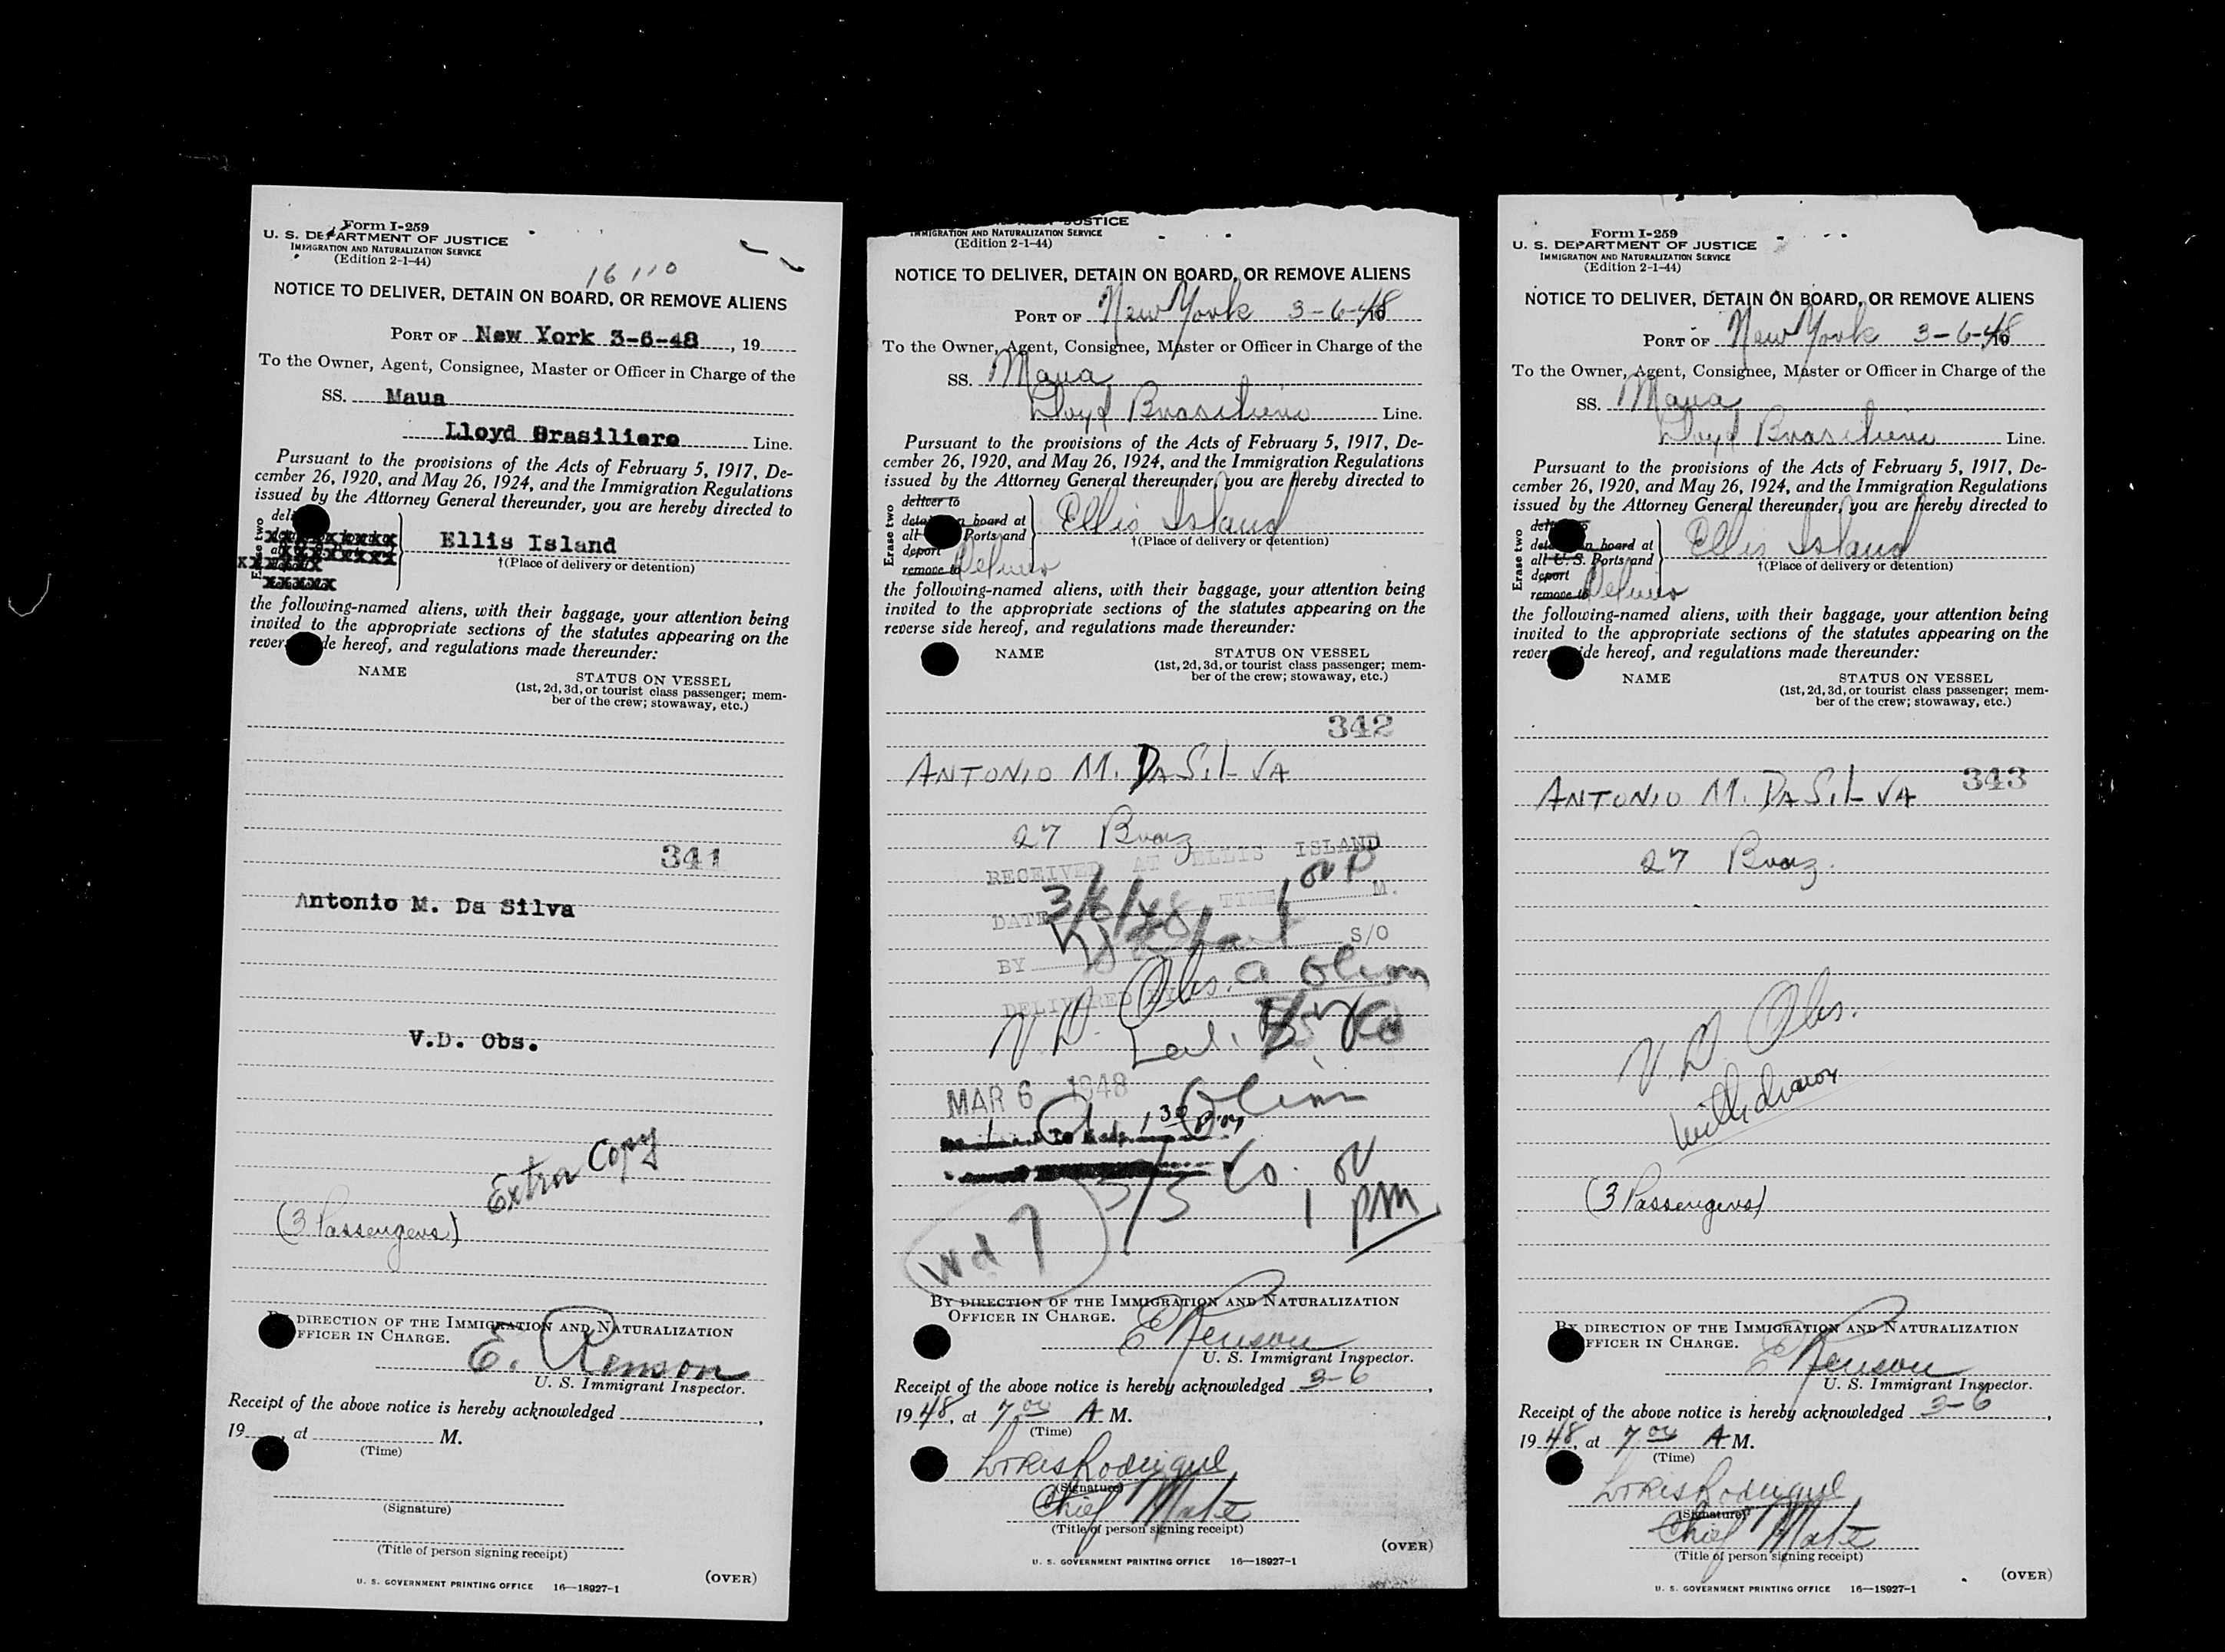 Form I-259
U. S. DEPARTMENT OF JUSTICE
IMMIGRATION AND NATURALIZATION SERVICE
(Edition 2-1-44)
16110
NOTICE TO DELIVER, DETAIN ON BOARD, OR REMOVE ALIENS
PORT OF New York 3-6-48, 19
To the Owner, Agent, Consignee, Master or Officer in Charge of the
SS. Maua
Lloyd Brasiliero Line.
Pursuant to the provisions of the Acts of February 5, 1917, De-
cember 26, 1920, and May 26, 1924, and the Immigration Regulations
issued by the Attorney General thereunder, you are hereby directed to
Ellis Island
†(Place of delivery or detention)
the following-named aliens, with their baggage, your attention being
invited to the appropriate sections of the statutes appearing on the
reverse side hereof, and regulations made thereunder:
NAME
STATUS ON VESSEL
(1st, 2d, 3d, or tourist class passenger; mem-
ber of the crew; stowaway, etc.)
341
Antonio M. Da Silva
V.D. Obs.
Extra Copy
(3 Passengers)
BY DIRECTION OF THE IMMIGRATION AND NATURALIZATION
OFFICER IN CHARGE.
E. Renson
U. S. Immigrant Inspector.
Receipt of the above notice is hereby acknowledged ,
19 , at M.
(Time)
(Signature)
(Title of person signing receipt)
(OVER)
U. S. GOVERNMENT PRINTING OFFICE 16—18927-1
JUSTICE
IMMIGRATION AND NATURALIZATION SERVICE
(Edition 2-1-44)
NOTICE TO DELIVER, DETAIN ON BOARD, OR REMOVE ALIENS
PORT OF New York 3-6-48
To the Owner, Agent, Consignee, Master or Officer in Charge of the
SS. Maua
Lloyd Brasiliero Line.
Pursuant to the provisions of the Acts of February 5, 1917, De-
cember 26, 1920, and May 26, 1924, and the Immigration Regulations
issued by the Attorney General thereunder, you are hereby directed to
Erase two
deliver to
detain on board at
all Ports and
deport
remove to Deliver
Ellis Island
†(Place of delivery or detention)
the following-named aliens, with their baggage, your attention being
invited to the appropriate sections of the statutes appearing on the
reverse side hereof, and regulations made thereunder:
NAME
STATUS ON VESSEL
(1st, 2d, 3d, or tourist class passenger; mem-
ber of the crew; stowaway, etc.)
342
ANTONIO M. DA SILVA
27 Braz
RECEIVED AT ELLIS ISLAND
DATE 3/6/48 TIME 1 00 P M.
BY S/O
DELIVERED
V.D. Obs.
MAR 6 1948
1 30 P.M.
Wd 7
1 PM
BY DIRECTION OF THE IMMIGRATION AND NATURALIZATION
OFFICER IN CHARGE.
E Renson
U. S. Immigrant Inspector.
Receipt of the above notice is hereby acknowledged 3-6,
1948, at 7 00 A M.
(Time)
(Signature)
Chief Mate
(Title of person signing receipt)
(OVER)
U. S. GOVERNMENT PRINTING OFFICE 16—18927-1
Form I-259
U. S. DEPARTMENT OF JUSTICE
IMMIGRATION AND NATURALIZATION SERVICE
(Edition 2-1-44)
NOTICE TO DELIVER, DETAIN ON BOARD, OR REMOVE ALIENS
PORT OF New York 3-6-48
To the Owner, Agent, Consignee, Master or Officer in Charge of the
SS. Maua
Lloyd Brasiliero Line.
Pursuant to the provisions of the Acts of February 5, 1917, De-
cember 26, 1920, and May 26, 1924, and the Immigration Regulations
issued by the Attorney General thereunder, you are hereby directed to
Erase two
deliver to
detain on board at
all U. S. Ports and
deport
remove to Deliver
Ellis Island
†(Place of delivery or detention)
the following-named aliens, with their baggage, your attention being
invited to the appropriate sections of the statutes appearing on the
reverse side hereof, and regulations made thereunder:
NAME
STATUS ON VESSEL
(1st, 2d, 3d, or tourist class passenger; mem-
ber of the crew; stowaway, etc.)
343
ANTONIO M. DA SILVA
27 Braz.
V.D. Obs.
Withdrawn
(3 Passengers)
BY DIRECTION OF THE IMMIGRATION AND NATURALIZATION
OFFICER IN CHARGE.
E Renson
U. S. Immigrant Inspector.
Receipt of the above notice is hereby acknowledged 3-6,
1948, at 7 00 A M.
(Time)
(Signature)
Chief Mate
(Title of person signing receipt)
(OVER)
U. S. GOVERNMENT PRINTING OFFICE 16—18927-1